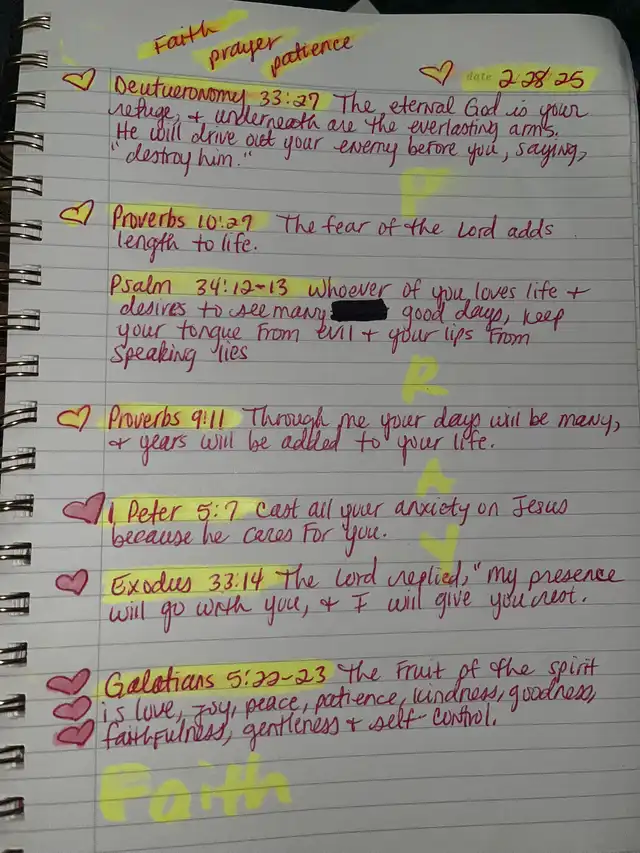 Faith
prayer
patience
date 2·28·25
Deutueronomy 33:27 The eternal God is your
refuge, + underneath are the everlasting arms.
He will drive out your enemy before you, saying,
"destroy him."
P
Proverbs 10:27 The fear of the Lord adds
length to life.
Psalm 34:12-13 Whoever of you loves life +
desires to see many good days, keep
your tongue from evil + your lips from
speaking lies
R
Proverbs 9:11 Through me your days will be many,
+ years will be added to your life.
A
1 Peter 5:7 Cast all your anxiety on Jesus
because he cares for you.
Y
Exodus 33:14 The Lord replied, "my presence
will go with you, + I will give you rest.
Galatians 5:22-23 The Fruit of the spirit
is love, joy, peace, patience, kindness, goodness,
faithfulness, gentleness + self-control.
Faith